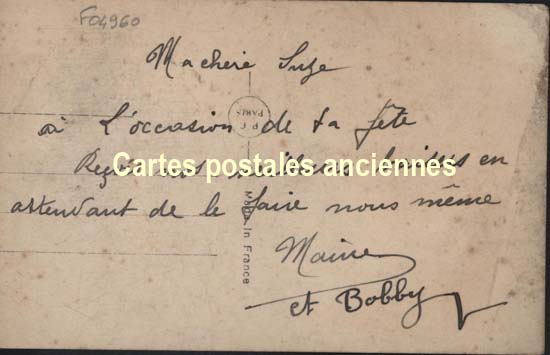 F04960
Ma chère Suze
à L'occasion de ta fête
nos meilleurs baisers en
attendant de le faire nous même
et Bobby
Cartes postales anciennes
P. C.
PARIS
Made in France